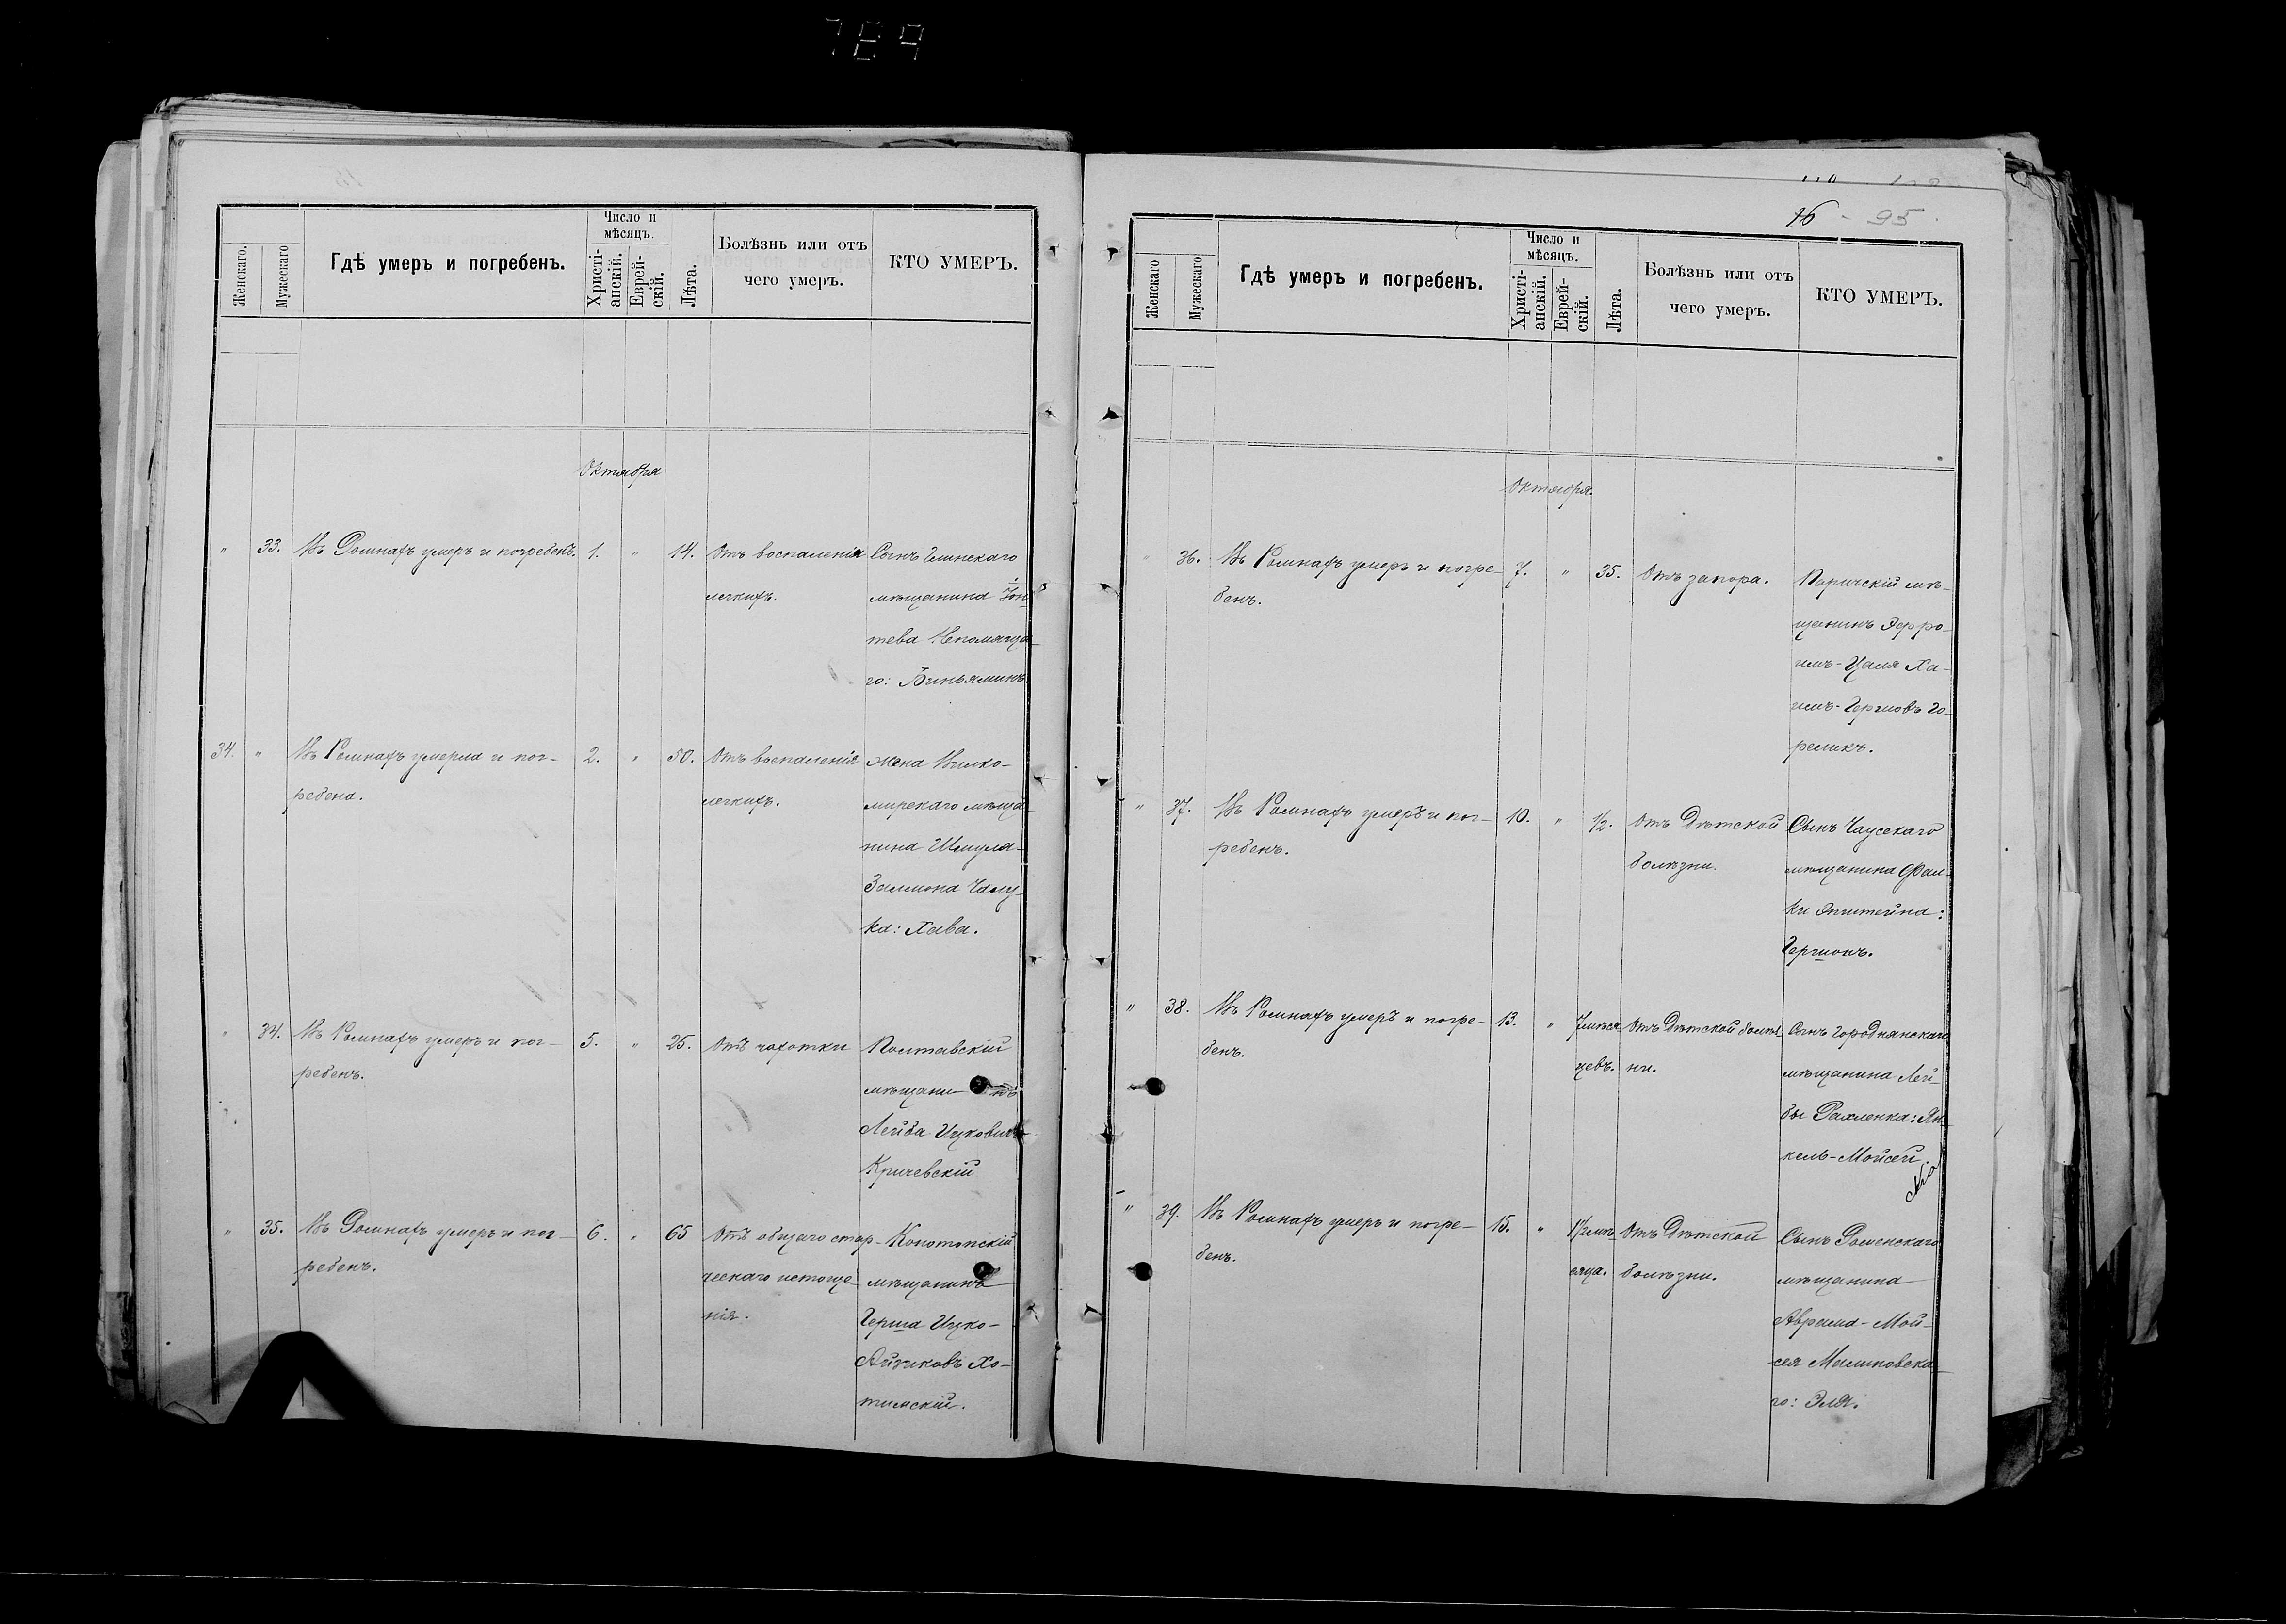 789
Женскаго.
Мужескаго
Гдѣ умеръ и погребенъ.
Число и
мѣсяцъ.
Христі-
анскій.
Еврей-
скій.
Лѣта.
Болѣзнь или отъ
чего умеръ.
КТО УМЕРЪ.
Октября
" 33. Въ Ромнахъ умеръ и погребенъ. 1. " 14. Отъ воспаленія
легкихъ.
Сынъ Глинскаго
мѣщанина
го: Биньяминъ.
34. " Въ Ромнахъ умерла и пог-
ребена.
2. " 50. Отъ воспаленія
легкихъ.
Жена Вилко-
мирскаго мѣща-
нина Шмула-
Залмона
ка: Хава.
" 34. Въ Ромнахъ умеръ и пог-
ребенъ.
5. " 25. Отъ чахотки
Полтавскій
мѣщани- нъ
Лейба Ицковичъ
Кричевскій
" 35. Въ Ромнахъ умеръ и пог-
ребенъ.
6. " 65 Отъ общаго стар-
ческаго истоще-
нія.
Конотопскій
мѣщанинъ
Герша Ицко-
Айзиковъ Хо-
тимскій.
16 - 95
Женскаго
Мужескаго
Гдѣ умеръ и погребенъ.
Число и
мѣсяцъ.
Христі-
анскій.
Еврей-
скій.
Лѣта.
Болѣзнь или отъ
чего умеръ.
КТО УМЕРЪ.
Октября.
" 36. Въ Ромнахъ умеръ и погре-
бенъ.
7. " 35. Отъ запора.
Паричскій мѣ-
щанинъ Эфро-
имъ-Цаля Ха-
имъ-Гершовъ Го-
реликъ.
" 37. Въ Ромнахъ умеръ и пог-
ребенъ.
10. " 1/2. Отъ Дѣтской
болѣзни.
Сынъ Чаусскаго
мѣщанина Фал-
ки Эпштейна:
Гершонъ.
" 38. Въ Ромнахъ умеръ и погре-
бенъ.
13. " 7 мѣся-
цевъ.
Отъ Дѣтской болѣз-
ни.
Сынъ Городнянскаго
мѣщанина Лей-
бы Рахленка: Ян-
кель-Мойсей.
" 39. Въ Ромнахъ умеръ и погре-
бенъ.
15. " 1 1/2 мѣ-
сяца.
Отъ Дѣтской
болѣзни.
Сынъ Роменскаго
мѣщанина
Аврама-Мой-
сея Малиновска-
го: Эля.